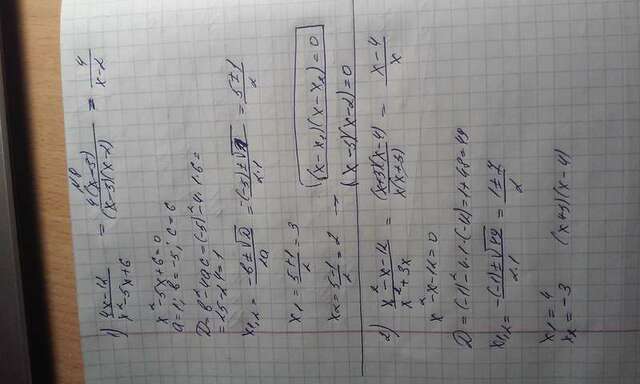 №8
1) (4x-12)/(x²-5x+6) = 4(x-3)/((x-3)(x-2)) = 4/(x-2)
x²-5x+6=0
a=1; b=-5; c=6
D=b²-4ac=(-5)²-4·1·6=
=25-24=1
x₁,₂=(-b±√D)/2a=(-(-5)±√1)/(2·1)=(5±1)/2
x₁=(5+1)/2=3
x₂=(5-1)/2=2 → (x-x₁)(x-x₂)=0
(x-3)(x-2)=0
2) (x²-x-12)/(x²+3x) = ((x+3)(x-4))/(x(x+3)) = (x-4)/x
x²-x-12=0
D=(-1)²-4·1·(-12)=1+48=49
x₁,₂=(-(-1)±√49)/(2·1)=(1±7)/2
x₁=4
x₂=-3 (x+3)(x-4)